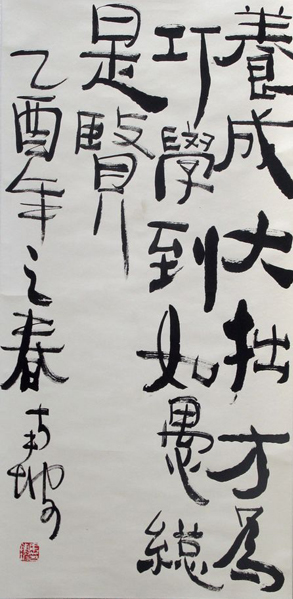 養成大拙方為
巧學到如愚総
是賢
乙酉年之春